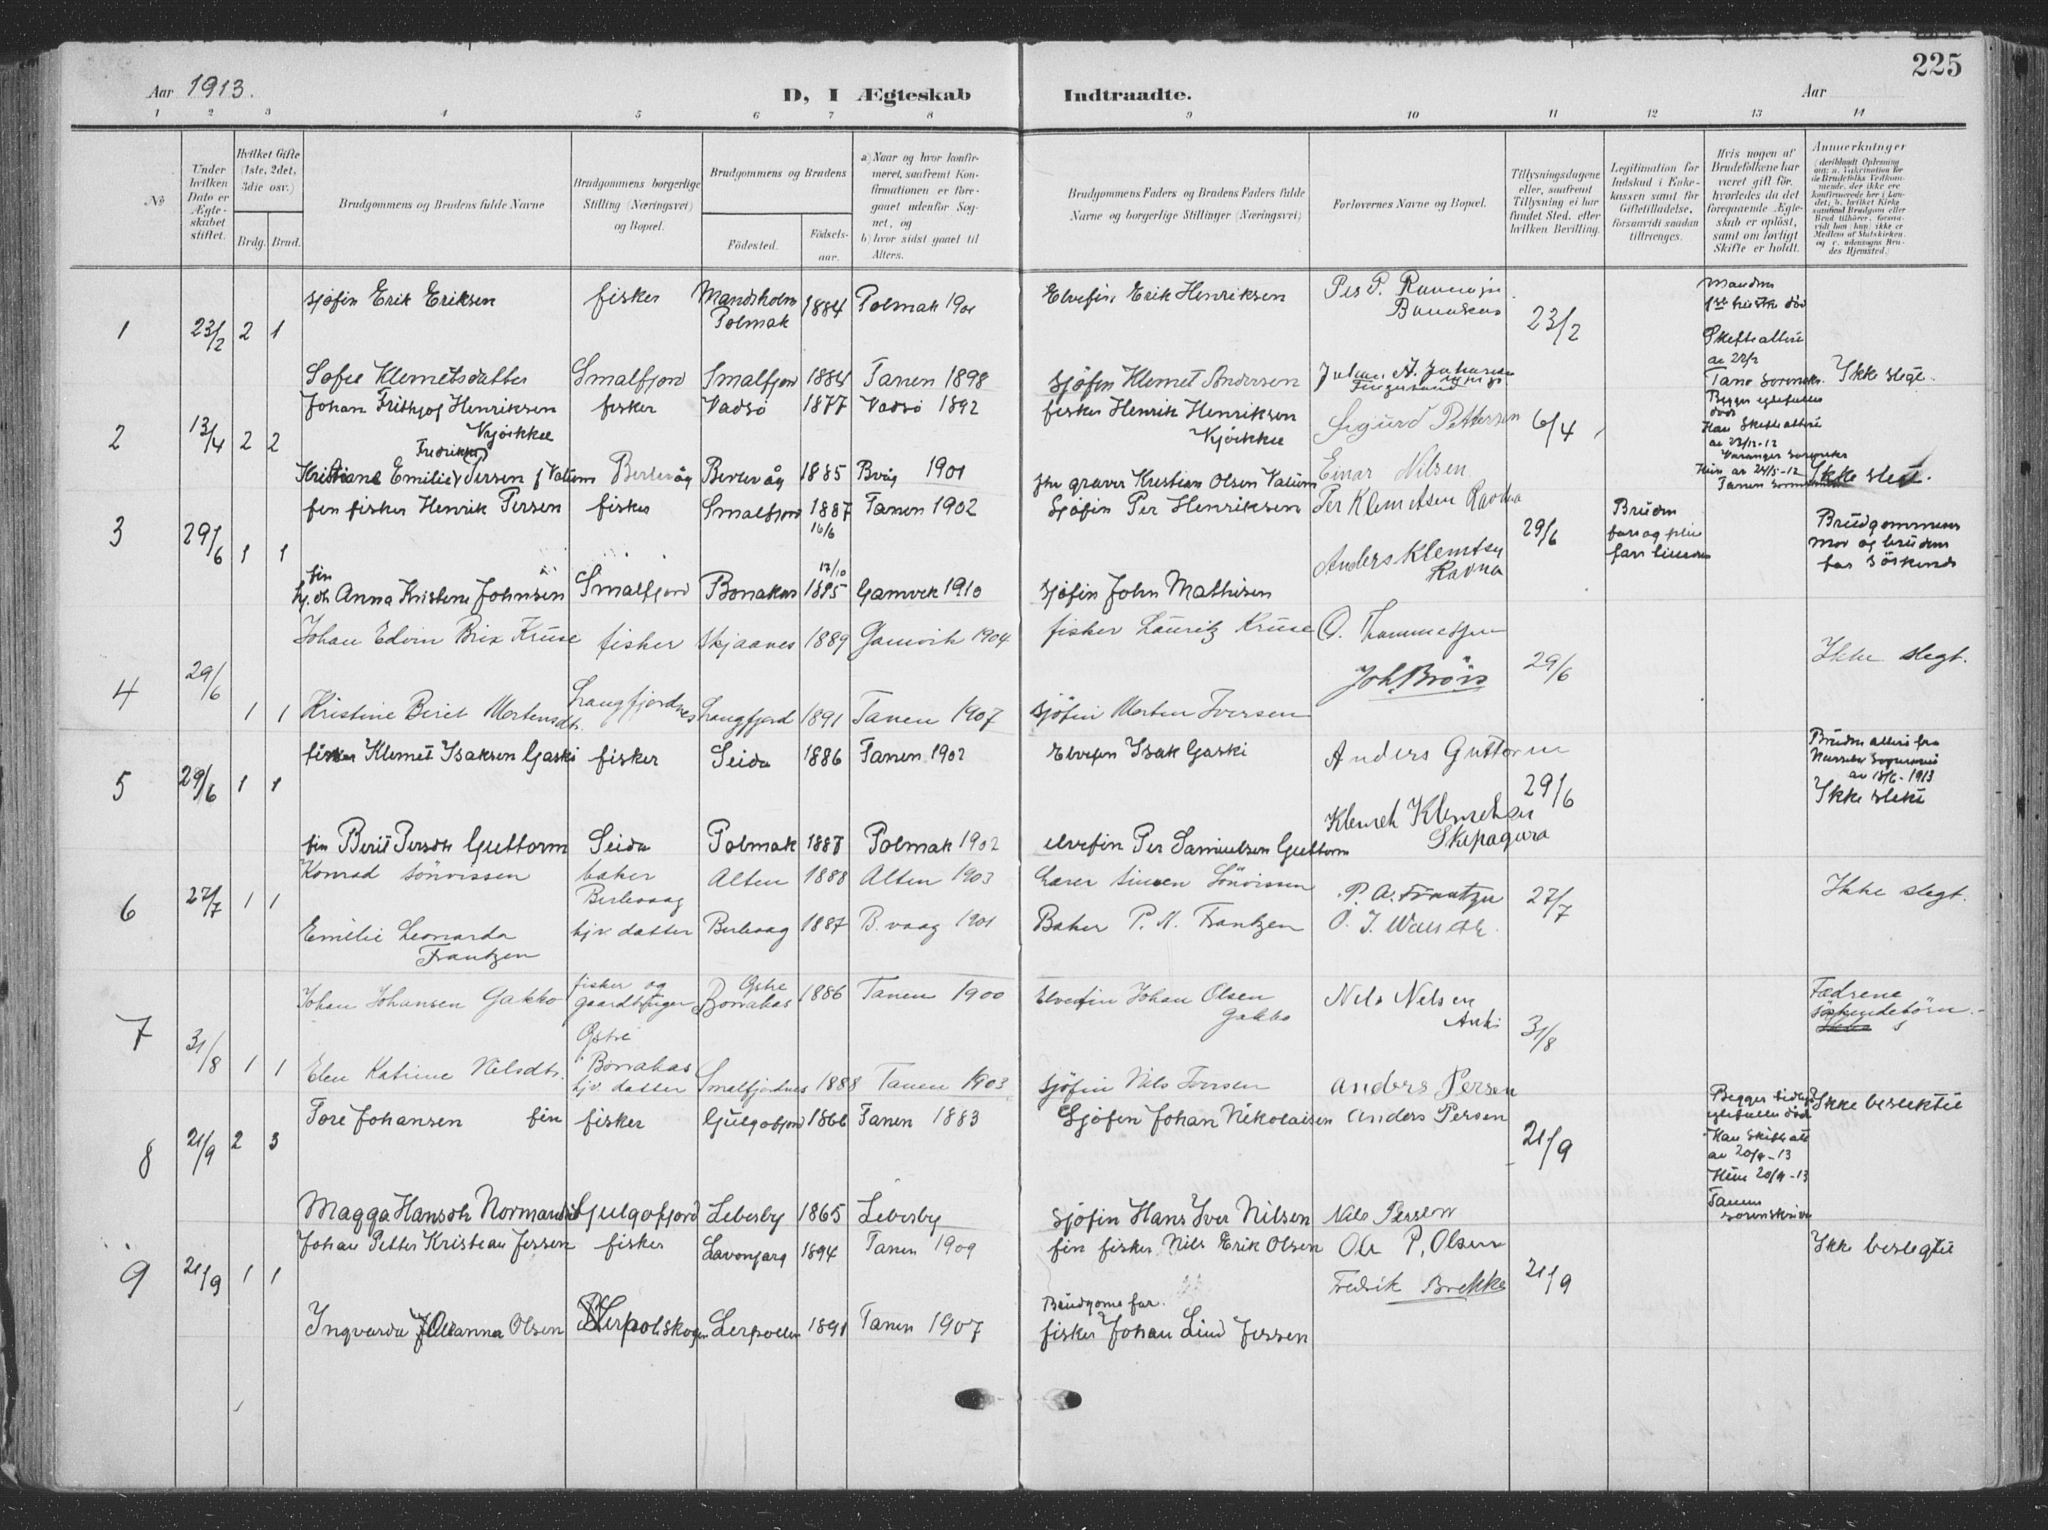 225
Aar 1913.
D, I Ægteskab Indtraadte.
Aar
1 2 3 4 5 6 7 8 9 10 11 12 13 14
No
Under hvilken Dato er Ægteskabet stiftet.
Hvilket Gifte (1ste, 2det, 3die osv.)
Brdg. Brud.
Brudgommens og Brudens fulde Navne
Brudgommens borgerlige Stilling (Næringsvei) og Bopæl.
Brudgommens og Brudens
Födested.
Födselsaar.
a) Naar og hvor konfirmeret, saafremt Konfirmationen er foregaaet udenfor Sognet, og
b) hvor sidst gaaet til Alters.
Brudgommens Faders og Brudens Faders fulde Navne og borgerlige Stillinger (Næringsvei)
Forlovernes Navne og Bopæl.
Tillysningsdagene eller, saafremt Tillysning ei har fundet Sted, efter hvilken Bevilling.
Legitimation for Indskud i Enkekassen samt for Giftetilladelse, forsaavidt saadan tiltrænges.
Hvis nogen af Brudefolkene har været gift för, hvorledes da det foregaaende Ægteskab er oplöst, samt om lovligt Skifte er holdt.
Anmerkninger
1 23/2 2 1 sjöfin Erik Eriksen fisker Mandsholm Polmak 1884 Polmak 1901 Elvefin Erik Henriksen 23/2
Mandens 1ste hustru död Skifteattest av 22/2 Tana Sorenskr.
Sofie Klemetsdatter Smalfjord Smalfjord 1884 Tanen 1898 Sjöfin Klemet Andersen Ikke slegt.
2 13/4 2 2 Johan Fridtjog Henriksen Kjöikkee fisker Vadsö 1877 Vadsö 1892 fisker Henrik Henriksen Kjöikkee Sigurd Pettersen 6/4
Begges egtefeller död Han Skifteattest av 23/12-12 Varanger sorenskr Hun av 24/5-12 Tanen
Kristiane Emilie Fredrikke Iversen f Valum Berlevåg Berlevåg 1885 Bvåg 1901 graver Kristian Olsen Valum Einar Nilsen Ikke slegt.
3 29/6 1 1 fin fisker Henrik Persen fisker Smalfjord 1887 16/6 Tanen 1902 Sjöfin Per Henriksen Per Klemetsen Ravna 29/6
Brudens far og
Brudgommens mor og brudens far söskende
fin hj. dt. Anna Kristine Johnsen Smalfjord Bonakas 17/10 1895 Gamvik 1910 sjöfin John Mathisen Anders Klemtsen Ravna
4 29/6 1 1 Johan Edvin Brix Kruse fisker Skjaanes 1889 Gamvik 1904 fisker Lauritz Kruse O. Thommesen 29/6 Ikke slegt.
Kristine Beret Mortensdtr. Langfjordnes Langfjord 1891 Tanen 1907 sjöfin Morten Iversen Joh. Bröis
5 29/6 1 1 Klemet Isaksen Gaski fisker Seida 1886 Tanen 1902 Elvefin Isak Gaski Anders Guttorm 29/6
Brudens attest fra Nesseby Sogneprest av 18/6-1913 Ikke slekt
fin Berit Persdtr Guttorm Seida Polmak 1887 Polmak 1902 elvefin Per Samuelsen Guttorm Klemet Klemetsen Skipagura
6 27/7 1 1 Konrad Sönvissen baker Berlevaag Alten 1888 Alten 1903 Lærer Simen Sönvissen P. A. Frantzen 27/7 Ikke slegt.
Emilie Leonarda Frantzen hjv. datter Berlevaag 1887 B. vaag 1901 Baker P. A. Frantzen O. J. Walseth.
7 31/8 1 1 Johan Johansen Gakko fisker og gaardbruger Östre Bonakas Östre Bonakas 1886 Tanen 1900 Elvefin Johan Olsen Gakko Nils Nilsen Anti 31/8
Fædrene söskendebörn.
Elen Katrine Nilsdtr. hjv. datter Smalfjordnes 1888 Tanen 1903 Sjöfin Nils Iversen Anders Persen
8 21/9 2 3 Tore Johansen fin fisker Gulgofjord 1866 Tanen 1883 Sjöfin Johan Nikolaisen Anders Persen 21/9
Begges egtefeller död Han Skifteatt av 20/9-13 Hun 20/9-13 Tanens sorenskriver
Ikke beslektet
Magga Hansdtr Normanset Gulgofjord Lebesby 1865 Lebesby Sjöfin Hans Iver Nilsen Nils Persen
9 21/9 1 1 Johan Petter Kristian Jessen fisker Lavonjarg 1894 Tanen 1909 fin fisker Nils Erik Olsen Ole P. Olsen 21/9 Ikke beslegtet
Ingvarda Johanna Olsen Lerpolskogen Lerpollen 1891 Tanen 1907 Brudgoms far. fisker Johan Lind Jessen Fredrik Brekke